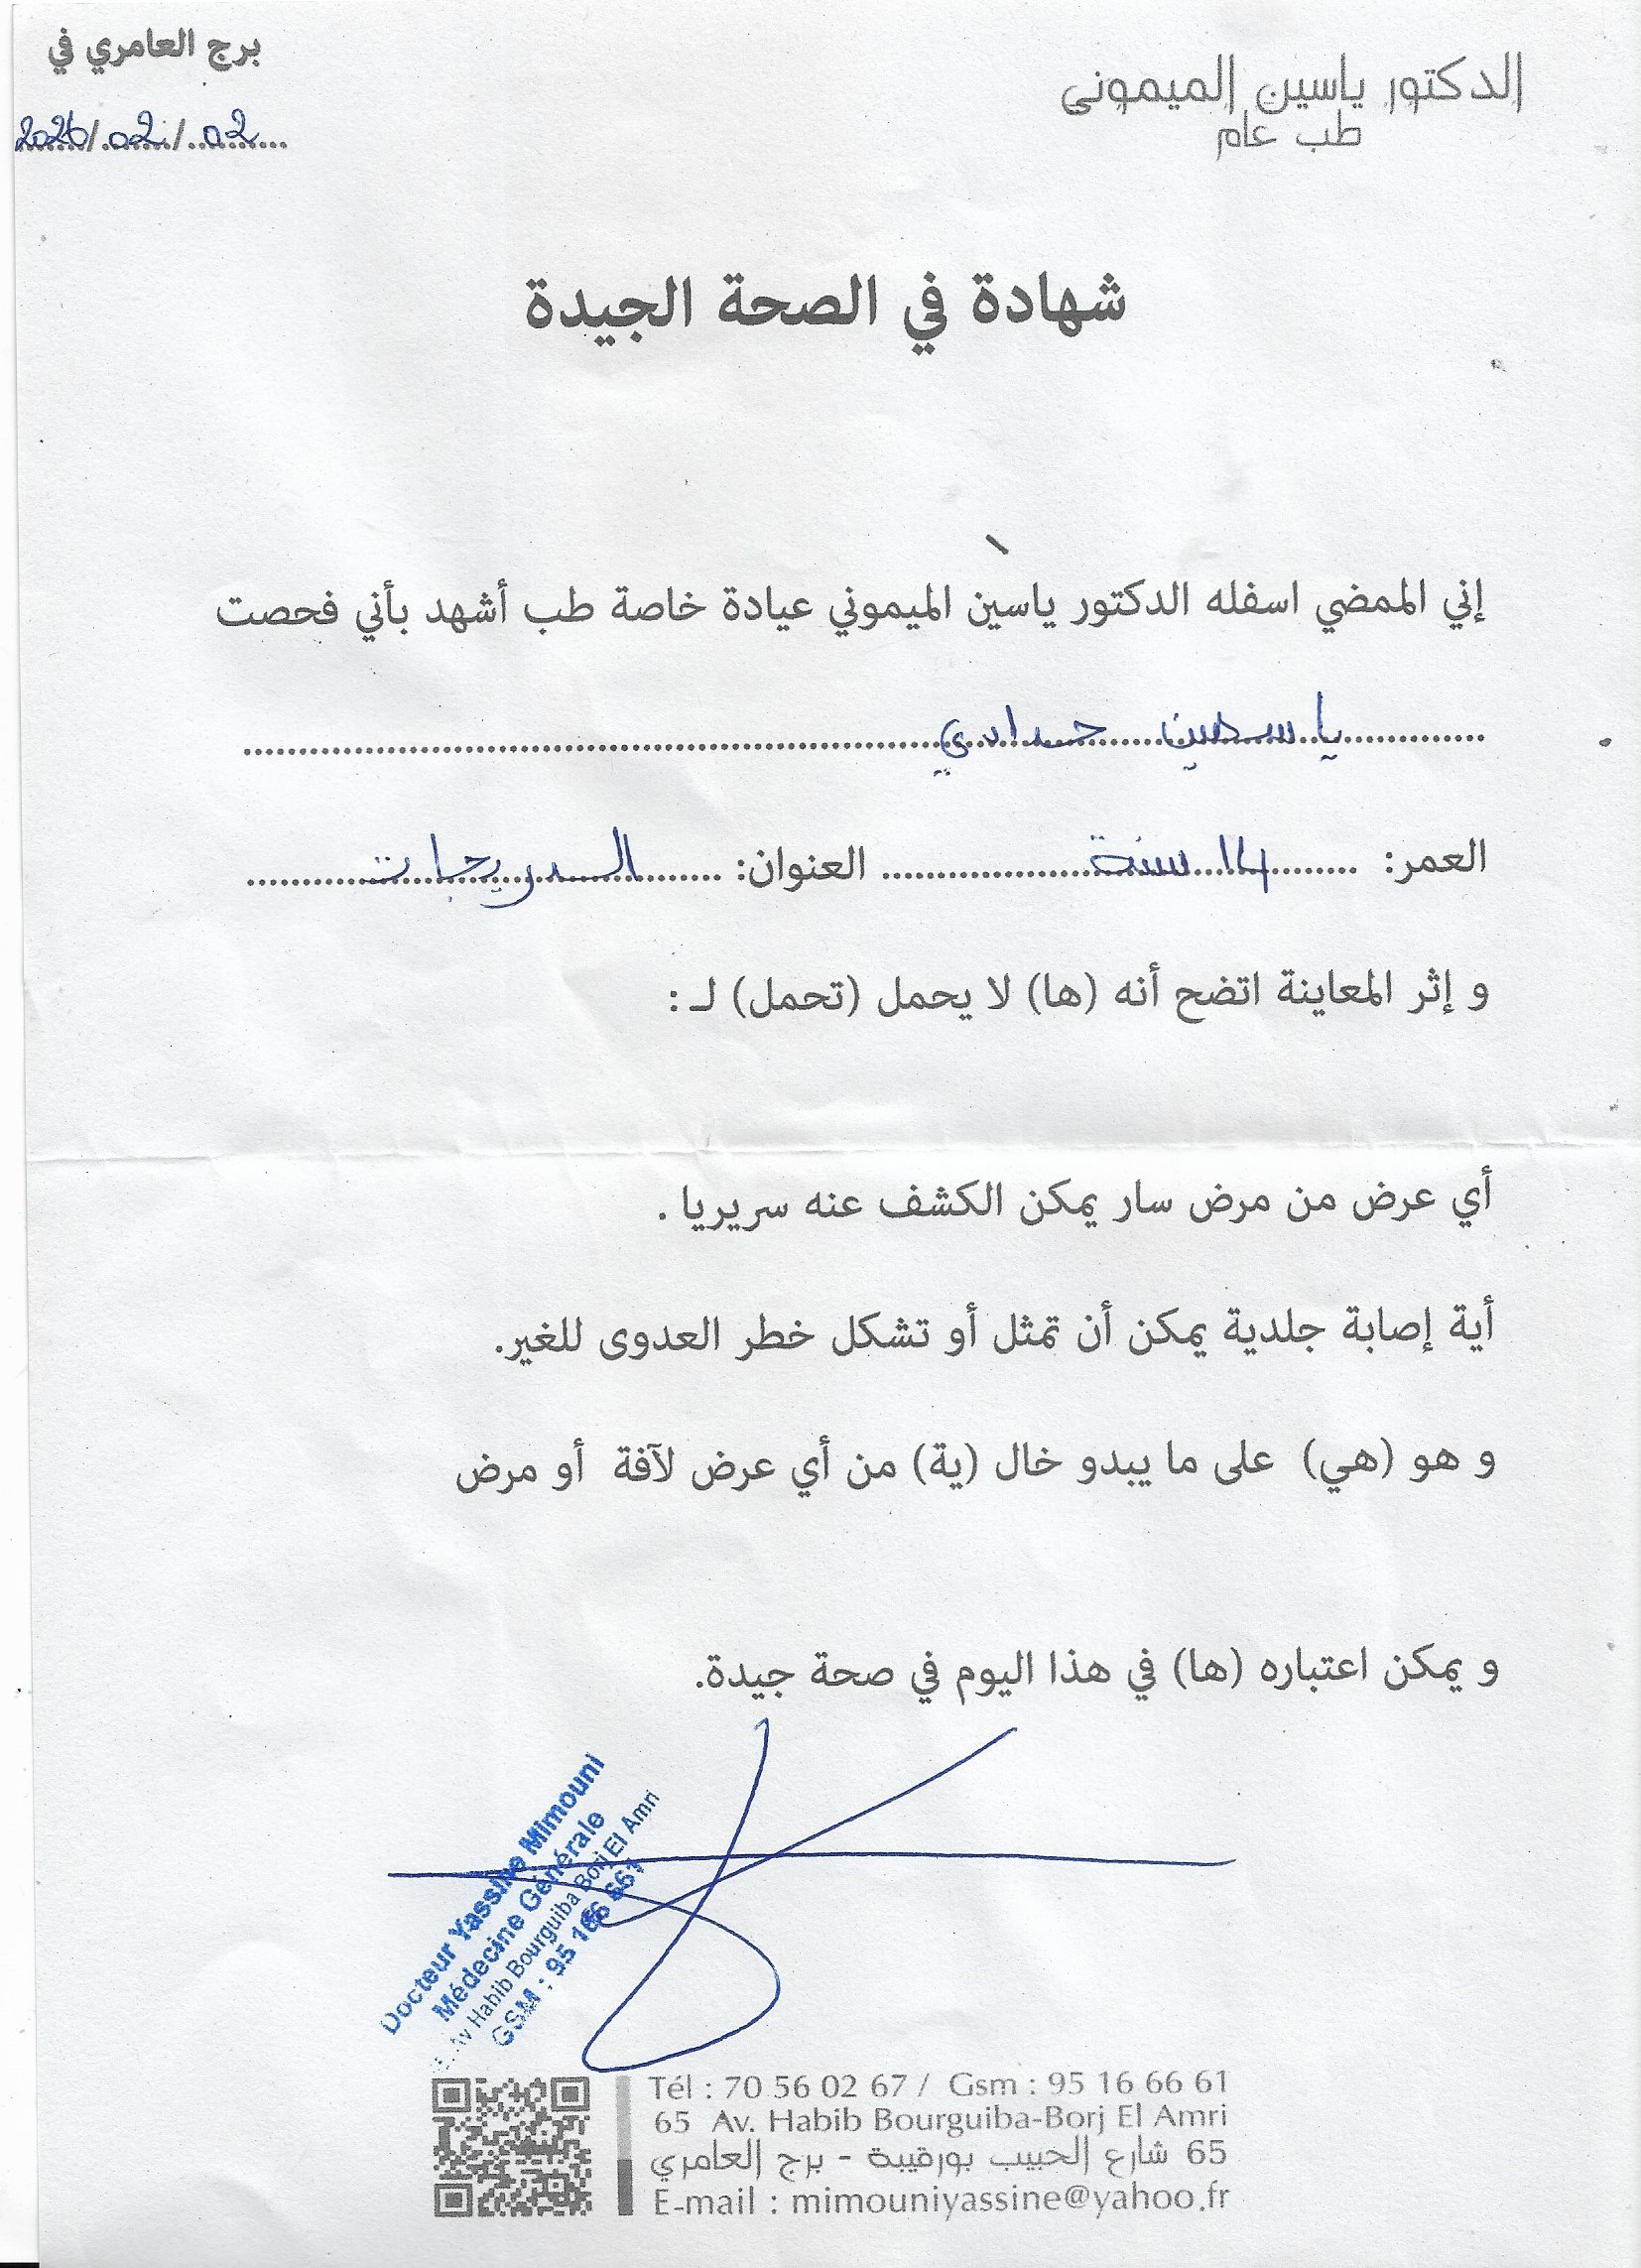 الدكتور ياسين الميموني
طب عام
برج العامري في
2026/02/02
شهادة في الصحة الجيدة
إني الممضي اسفله الدكتور ياسين الميموني عيادة خاصة طب أشهد بأني فحصت
ياسمين حمادي
العمر: 14 سنة العنوان: الدريجات
و إثر المعاينة اتضح أنه (ها) لا يحمل (تحمل) لـ :
أي عرض من مرض سار يمكن الكشف عنه سريريا .
أية إصابة جلدية يمكن أن تمثل أو تشكل خطر العدوى للغير.
و هو (هي) على ما يبدو خال (ية) من أي عرض لآفة أو مرض
و يمكن اعتباره (ها) في هذا اليوم في صحة جيدة.
Docteur Yassine Mimouni
Médecine Générale
Av Habib Bourguiba Borj El Amri
GSM : 95 166 661
Tél : 70 56 02 67 / Gsm : 95 16 66 61
65 Av. Habib Bourguiba-Borj El Amri
65 شارع الحبيب بورقيبة - برج العامري
E-mail : mimouniyassine@yahoo.fr